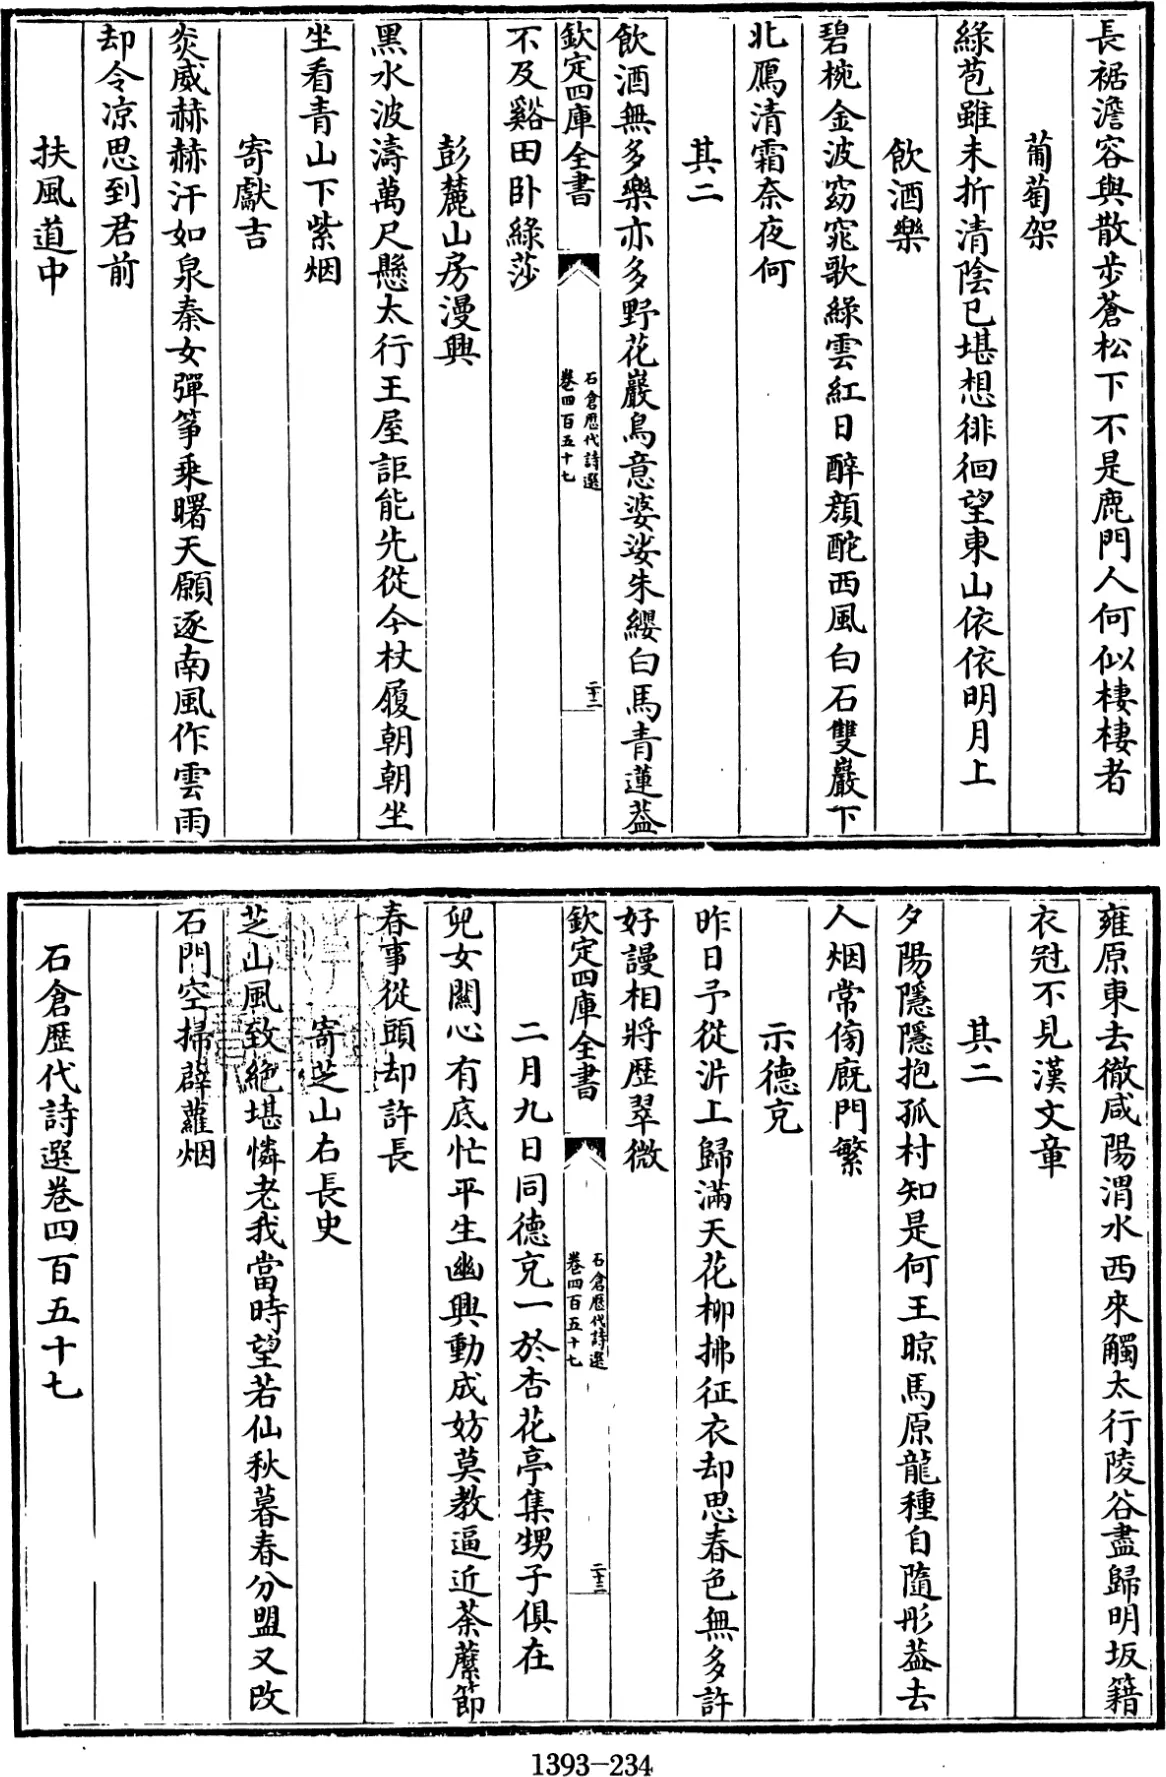 長裾澹容與散步蒼松下不是鹿門人何似棲棲者
葡萄架
綠苞雖未折清陰已堪想徘徊望東山依依明月上
飲酒樂
碧椀金波窈窕歌綠雲紅日醉顏酡西風白石雙巖下
北鴈清霜奈夜何
其二
飲酒無多樂亦多野花巖鳥意婆娑朱纓白馬青蓮葢
欽定四庫全書
石倉歷代詩選
卷四百五十七
二十二
不及谿田卧綠莎
彭麓山房漫興
黑水波濤萬尺懸太行王屋詎能先從今杖履朝朝坐
坐看青山下紫烟
寄獻吉
炎威赫赫汗如泉秦女彈箏乘曙天願逐南風作雲雨
却令凉思到君前
扶風道中
雍原東去徹咸陽渭水西來觸太行陵谷盡歸明坂籍
衣冠不見漢文章
其二
夕陽隱隱抱孤村知是何王晾馬原龍種自隨彤葢去
人烟常傍廐門繁
示德克
昨日予從沜上歸滿天花柳拂征衣却思春色無多許
好謾相將歷翠微
欽定四庫全書
石倉歷代詩選
卷四百五十七
二十三
二月九日同德克一於杏花亭集甥子俱在
兒女關心有底忙平生幽興動成妨莫教逼近荼䕷節
春事從頭却許長
寄芝山右長史
芝山風致絶堪憐老我當時望若仙秋暮春分盟又改
石門空掃薜蘿烟
石倉歷代詩選卷四百五十七
1393-234